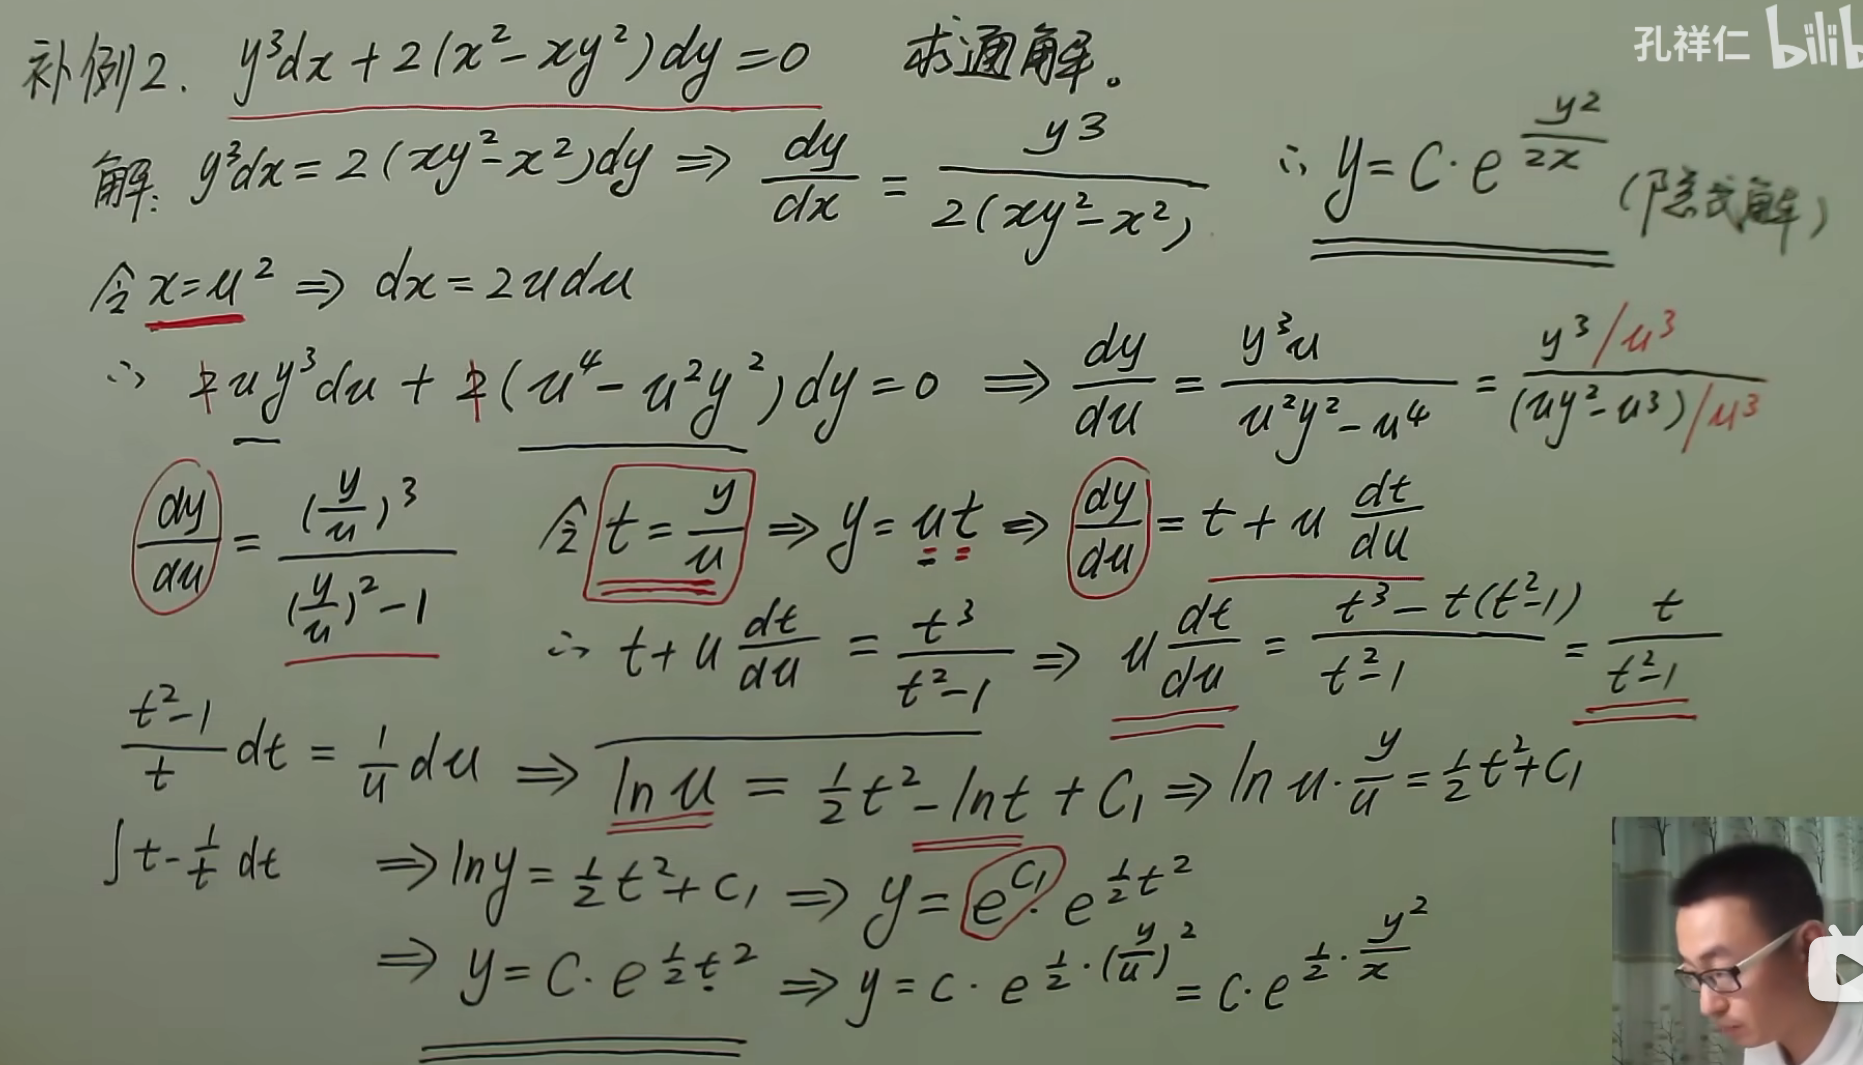 孔祥仁 bilib
补例2. y³dx + 2(x² - xy²)dy = 0 求通解。
解: y³dx = 2(xy² - x²)dy ⇒ dy/dx = y3/2(xy² - x²)
∴ y = C · e^(y²/2x) (隐式解)
令 x = u² ⇒ dx = 2udu
∴ 2uy³du + 2(u⁴ - u²y²)dy = 0 ⇒ dy/du = y³u/(u²y² - u⁴) = y³/u³/(uy² - u³)/u³
dy/du = (y/u)³/((y/u)² - 1) 令 t = y/u ⇒ y = ut ⇒ dy/du = t + u dt/du
∴ t + u dt/du = t³/(t² - 1) ⇒ u dt/du = (t³ - t(t² - 1))/(t² - 1) = t/(t² - 1)
(t² - 1)/t dt = 1/u du ⇒ ln u = ½t² - ln t + C₁ ⇒ ln u · y/u = ½t² + C₁
∫ t - 1/t dt ⇒ ln y = ½t² + C₁ ⇒ y = e^(C₁) · e^(½t²)
⇒ y = C · e^(½t²) ⇒ y = C · e^(½·(y/u)²) = C · e^(½·y²/x)